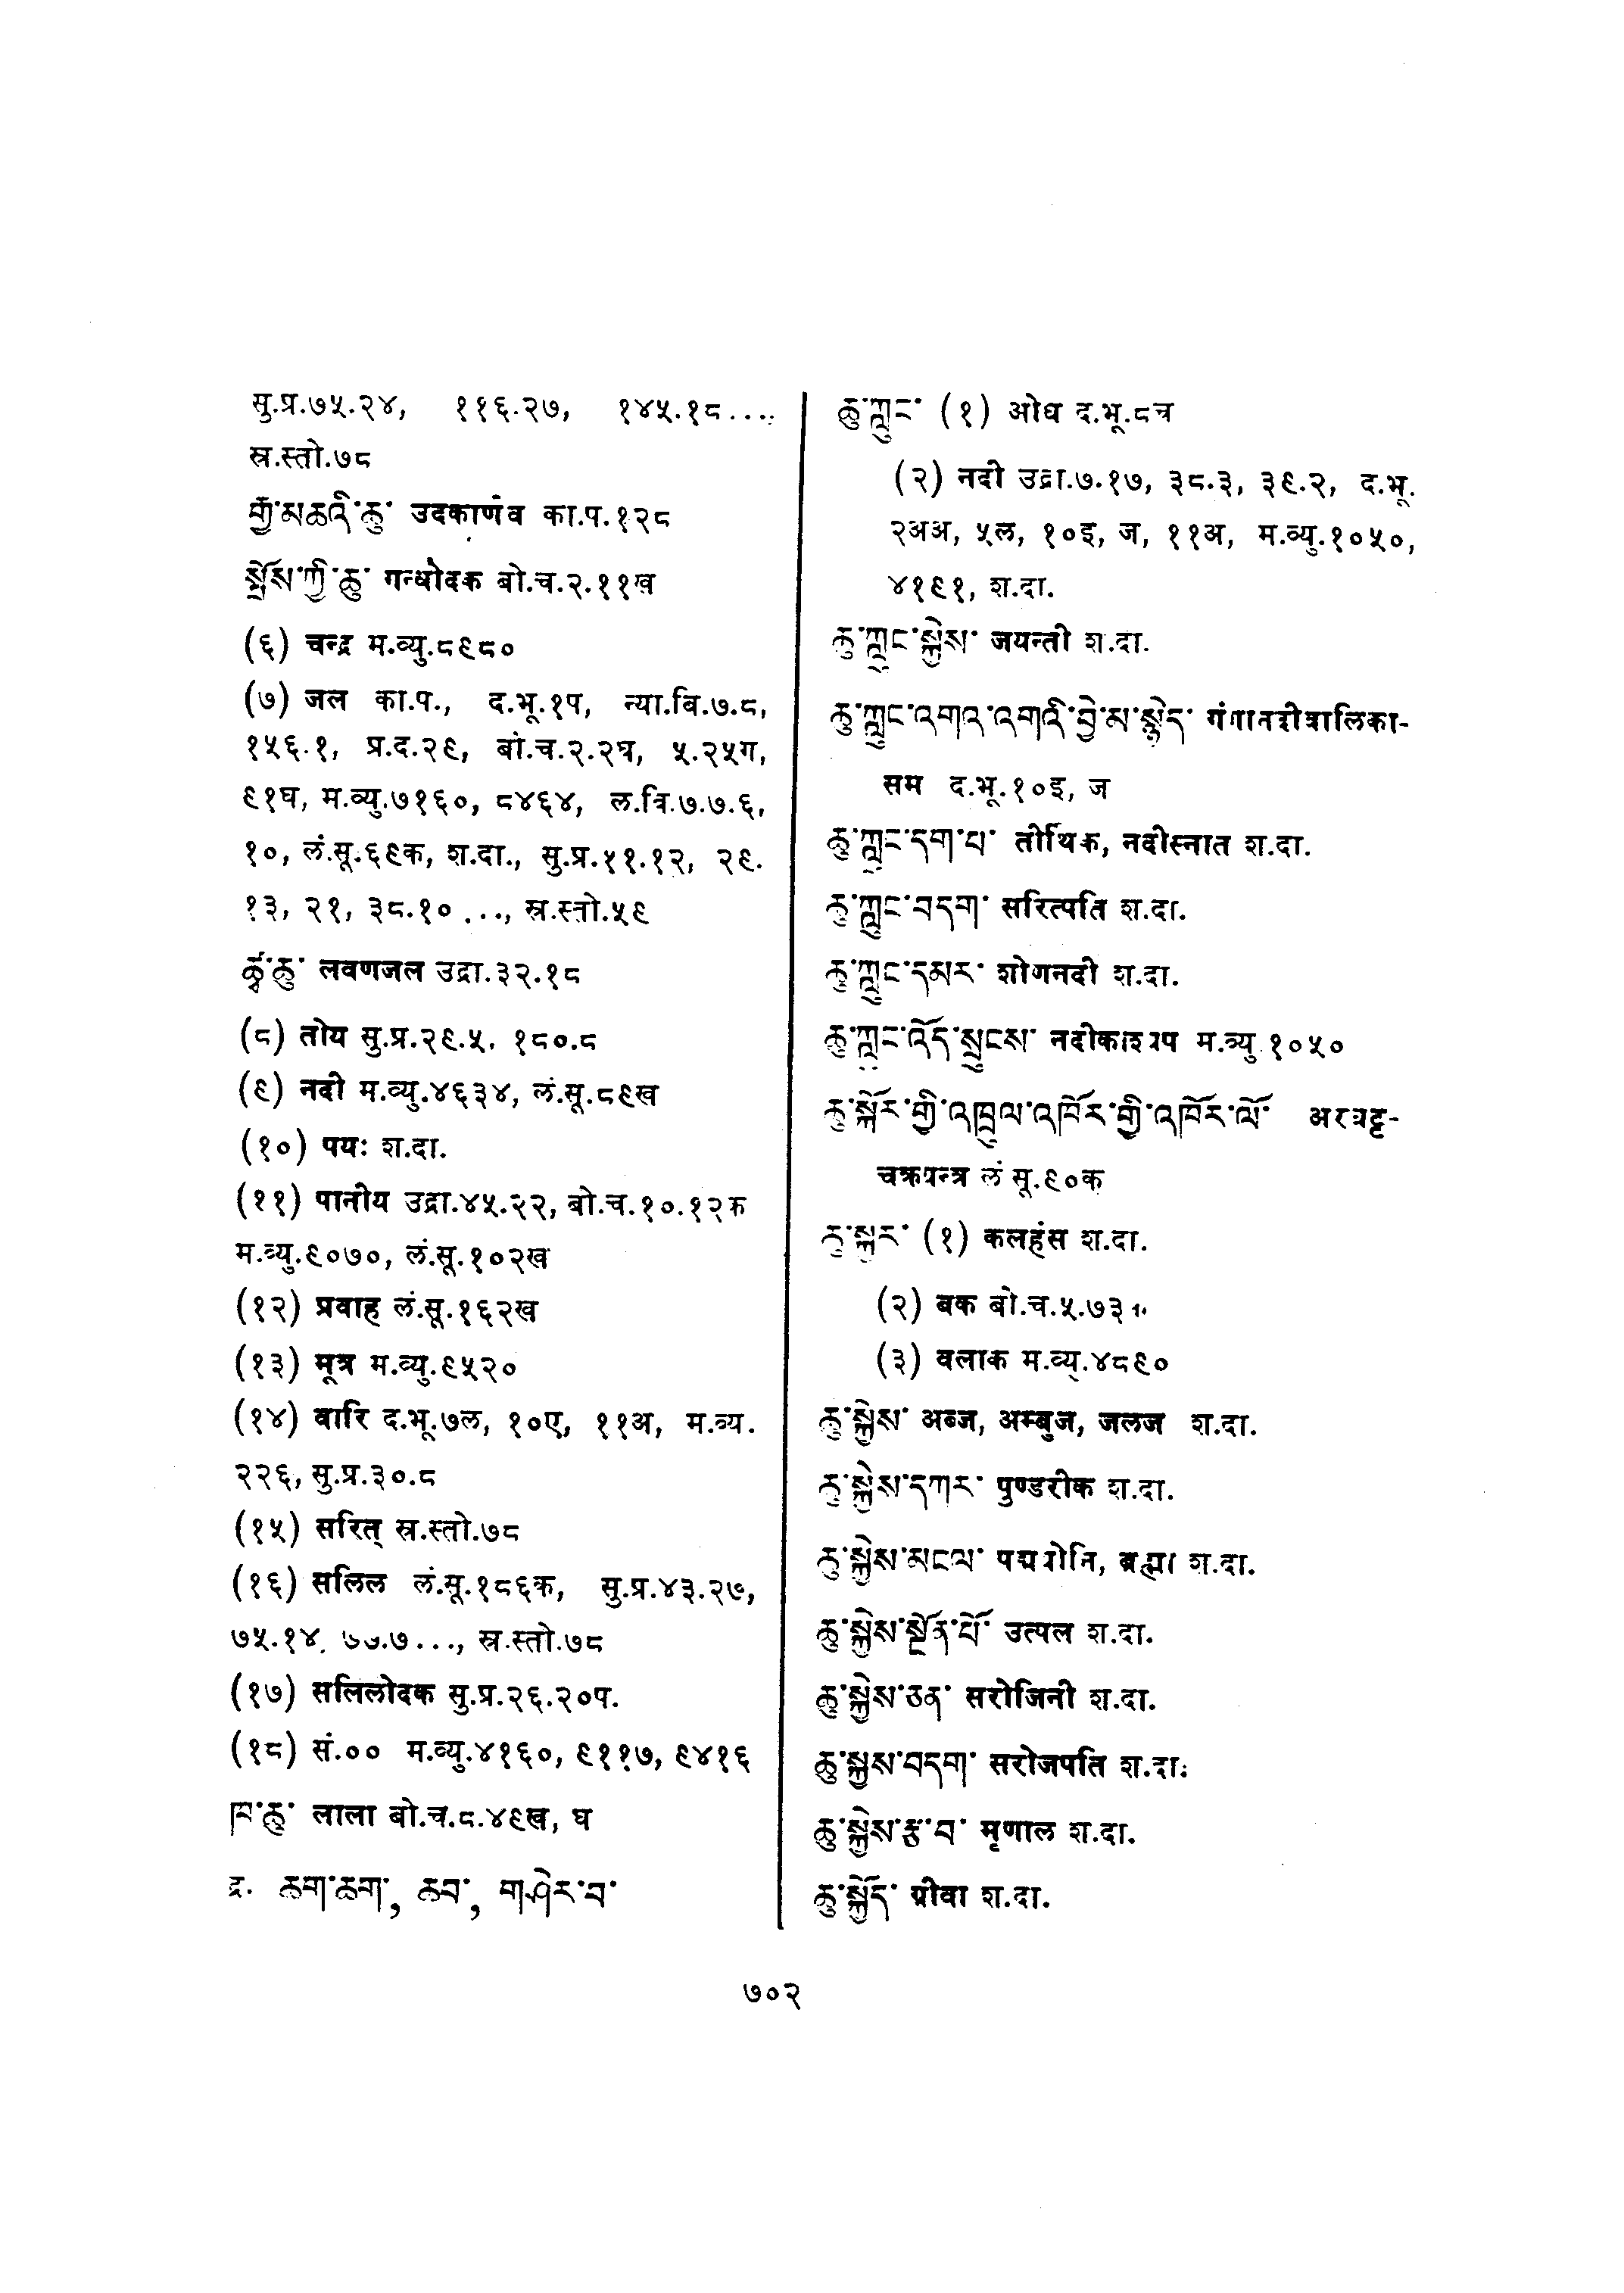 सु.प्र.७५.२४, ११६.२७, १४५.१८....
स्र.स्तो.७८
རྒྱ་མཚའི་ཆུ་ उदकार्णव का.प.१२८
སྤོས་ཀྱི་ཆུ་ गन्धोदक बो.च.२.११ख
(६) चन्द्र म.व्यु.८९८०
(७) जल का.प., द.भू.१प, न्या.बि.७.८,
१५६.१, प्र.द.२९, बो.च.२.२घ, ५.२५ग,
९१घ, म.व्यु.७१६०, ८४६४, ल.त्रि.७.७.६,
१०, लं.सू.६९क, श.दा., सु.प्र.११.१२, २९.
१३, २१, ३८.१० ..., स्र.स्तो.५९
ཚྭ་ཆུ་ लवणजल उद्रा.३२.१८
(८) तोय सु.प्र.२९.५, १८०.८
(९) नदी म.व्यु.४६३४, लं.सू.८९ख
(१०) पयः श.दा.
(११) पानीय उद्रा.४५.२२, बो.च.१०.१२क
म.व्यु.९०७०, लं.सू.१०२ख
(१२) प्रवाह लं.सू.१६२ख
(१३) मूत्र म.व्यु.९५२०
(१४) वारि द.भू.७ल, १०ए, ११अ, म.व्य.
२२६, सु.प्र.३०.८
(१५) सरित् स्र.स्तो.७८
(१६) सलिल लं.सू.१८६क, सु.प्र.४३.२७,
७५.१४, ७७.७ ..., स्र.स्तो.७८
(१७) सलिलोदक सु.प्र.२६.२०प.
(१८) सं.०० म.व्यु.४१६०, ९११७, ९४१६
ཁ་ཆུ་ लाला बो.च.८.४९ख, घ
द्र. ཆག་ཆག་, ཆབ་, གཤེར་བ་
ཆུ་ཀླུང་ (१) ओघ द.भू.८च
(२) नदी उद्रा.७.१७, ३८.३, ३९.२, द.भू.
२अअ, ५ल, १०इ, ज, ११अ, म.व्यु.१०५०,
४१९१, श.दा.
ཆུ་ཀླུང་སྐྱེས་ जयन्ती श.दा.
ཆུ་ཀླུང་འགའ་འགའི་བྱེ་མ་སྙེད་ गंगानदीवालिका-
सम द.भू.१०इ, ज
ཆུ་ཀླུང་དག་པ་ तीर्थिक, नदीस्नात श.दा.
ཆུ་ཀླུང་བདག་ सरित्पति श.दा.
ཆུ་ཀླུང་དམར་ शोणनदी श.दा.
ཆུ་ཀླུང་འོད་སྲུངས་ नदीकाश्यप म.व्यु.१०५०
ཆུ་སྐོར་གྱི་འཁྲུལ་འཁོར་གྱི་འཁོར་ལོ་ अरघट्ट-
चक्रयन्त्र लं सू.९०क
ཆུ་སྐྱར་ (१) कलहंस श.दा.
(२) बक बो.च.५.७३
(३) वलाक म.व्यु.४८९०
ཆུ་སྐྱེས་ अब्ज, अम्बुज, जलज श.दा.
ཆུ་སྐྱེས་དཀར་ पुण्डरीक श.दा.
ཆུ་སྐྱེས་མངལ་ पद्मयोनि, ब्रह्मा श.दा.
ཆུ་སྐྱེས་སྔོན་པོ་ उत्पल श.दा.
ཆུ་སྐྱེས་ཅན་ सरोजिनी श.दा.
ཆུ་སྐྱེས་བདག་ सरोजपति श.दा.
ཆུ་སྐྱེས་རྩ་བ་ मृणाल श.दा.
ཆུ་སྐྱོད་ ग्रीवा श.दा.
७०२